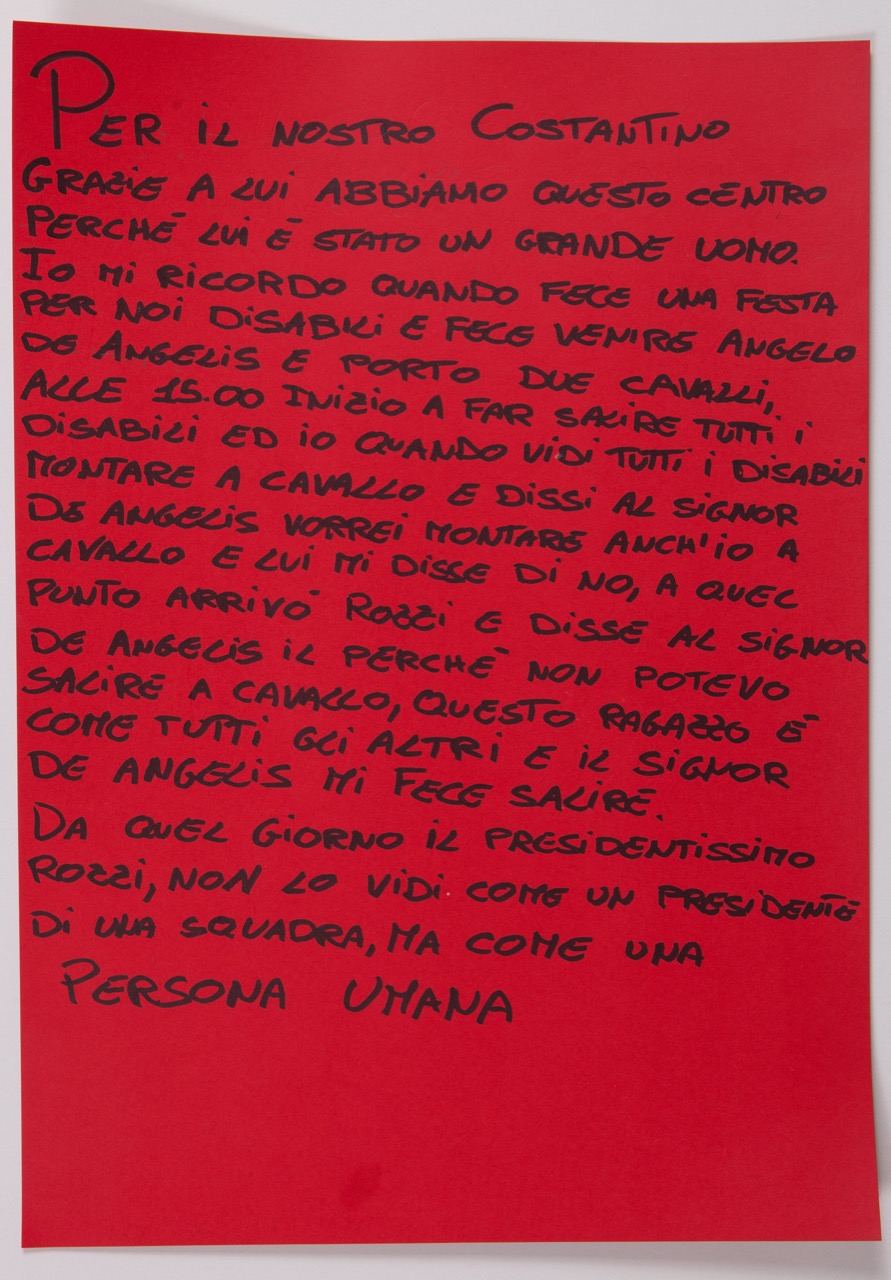 PER iL NOSTRO COSTANTINO
GRAZIE A LUI ABBIAMO QUESTO CENTRO
PERCHÉ LUI É STATO UN GRANDE UOMO.
IO MI RICORDO QUANDO FECE UNA FESTA
PER NOI DISABILI E FECE VENIRE ANGELO
DE ANGELIS E PORTO DUE CAVALLI,
ALLE 15.00 INIZIO A FAR SALIRE TUTTI I
DISABILI ED IO QUANDO VIDI TUTTI I DISABILI
MONTARE A CAVALLO E DISSI AL SIGNOR
DE ANGELIS VORREI MONTARE ANCH'IO A
CAVALLO E LUI MI DISSE DI NO, A QUEL
PUNTO ARRIVÒ ROZZI E DISSE AL SIGNOR
DE ANGELIS IL PERCHÉ NON POTEVO
SALIRE A CAVALLO, QUESTO RAGAZZO É
COME TUTTI GLI ALTRI E IL SIGNOR
DE ANGELIS MI FECE SALIRE.
DA QUEL GIORNO IL PRESIDENTISSIMO
ROZZI, NON LO VIDI COME UN PRESIDENTE
DI UNA SQUADRA, MA COME UNA
PERSONA UMANA